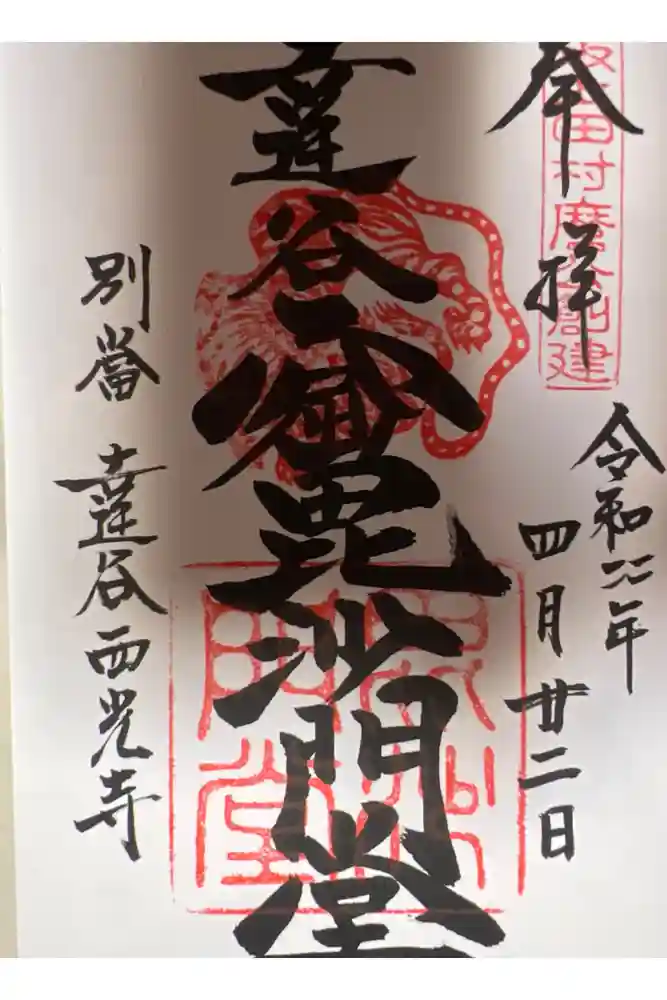 奉拝
坂上田村麿公創建
令和二年
四月廿二日
達谷
毘沙門堂
毘沙
門堂
別當 達谷西光寺